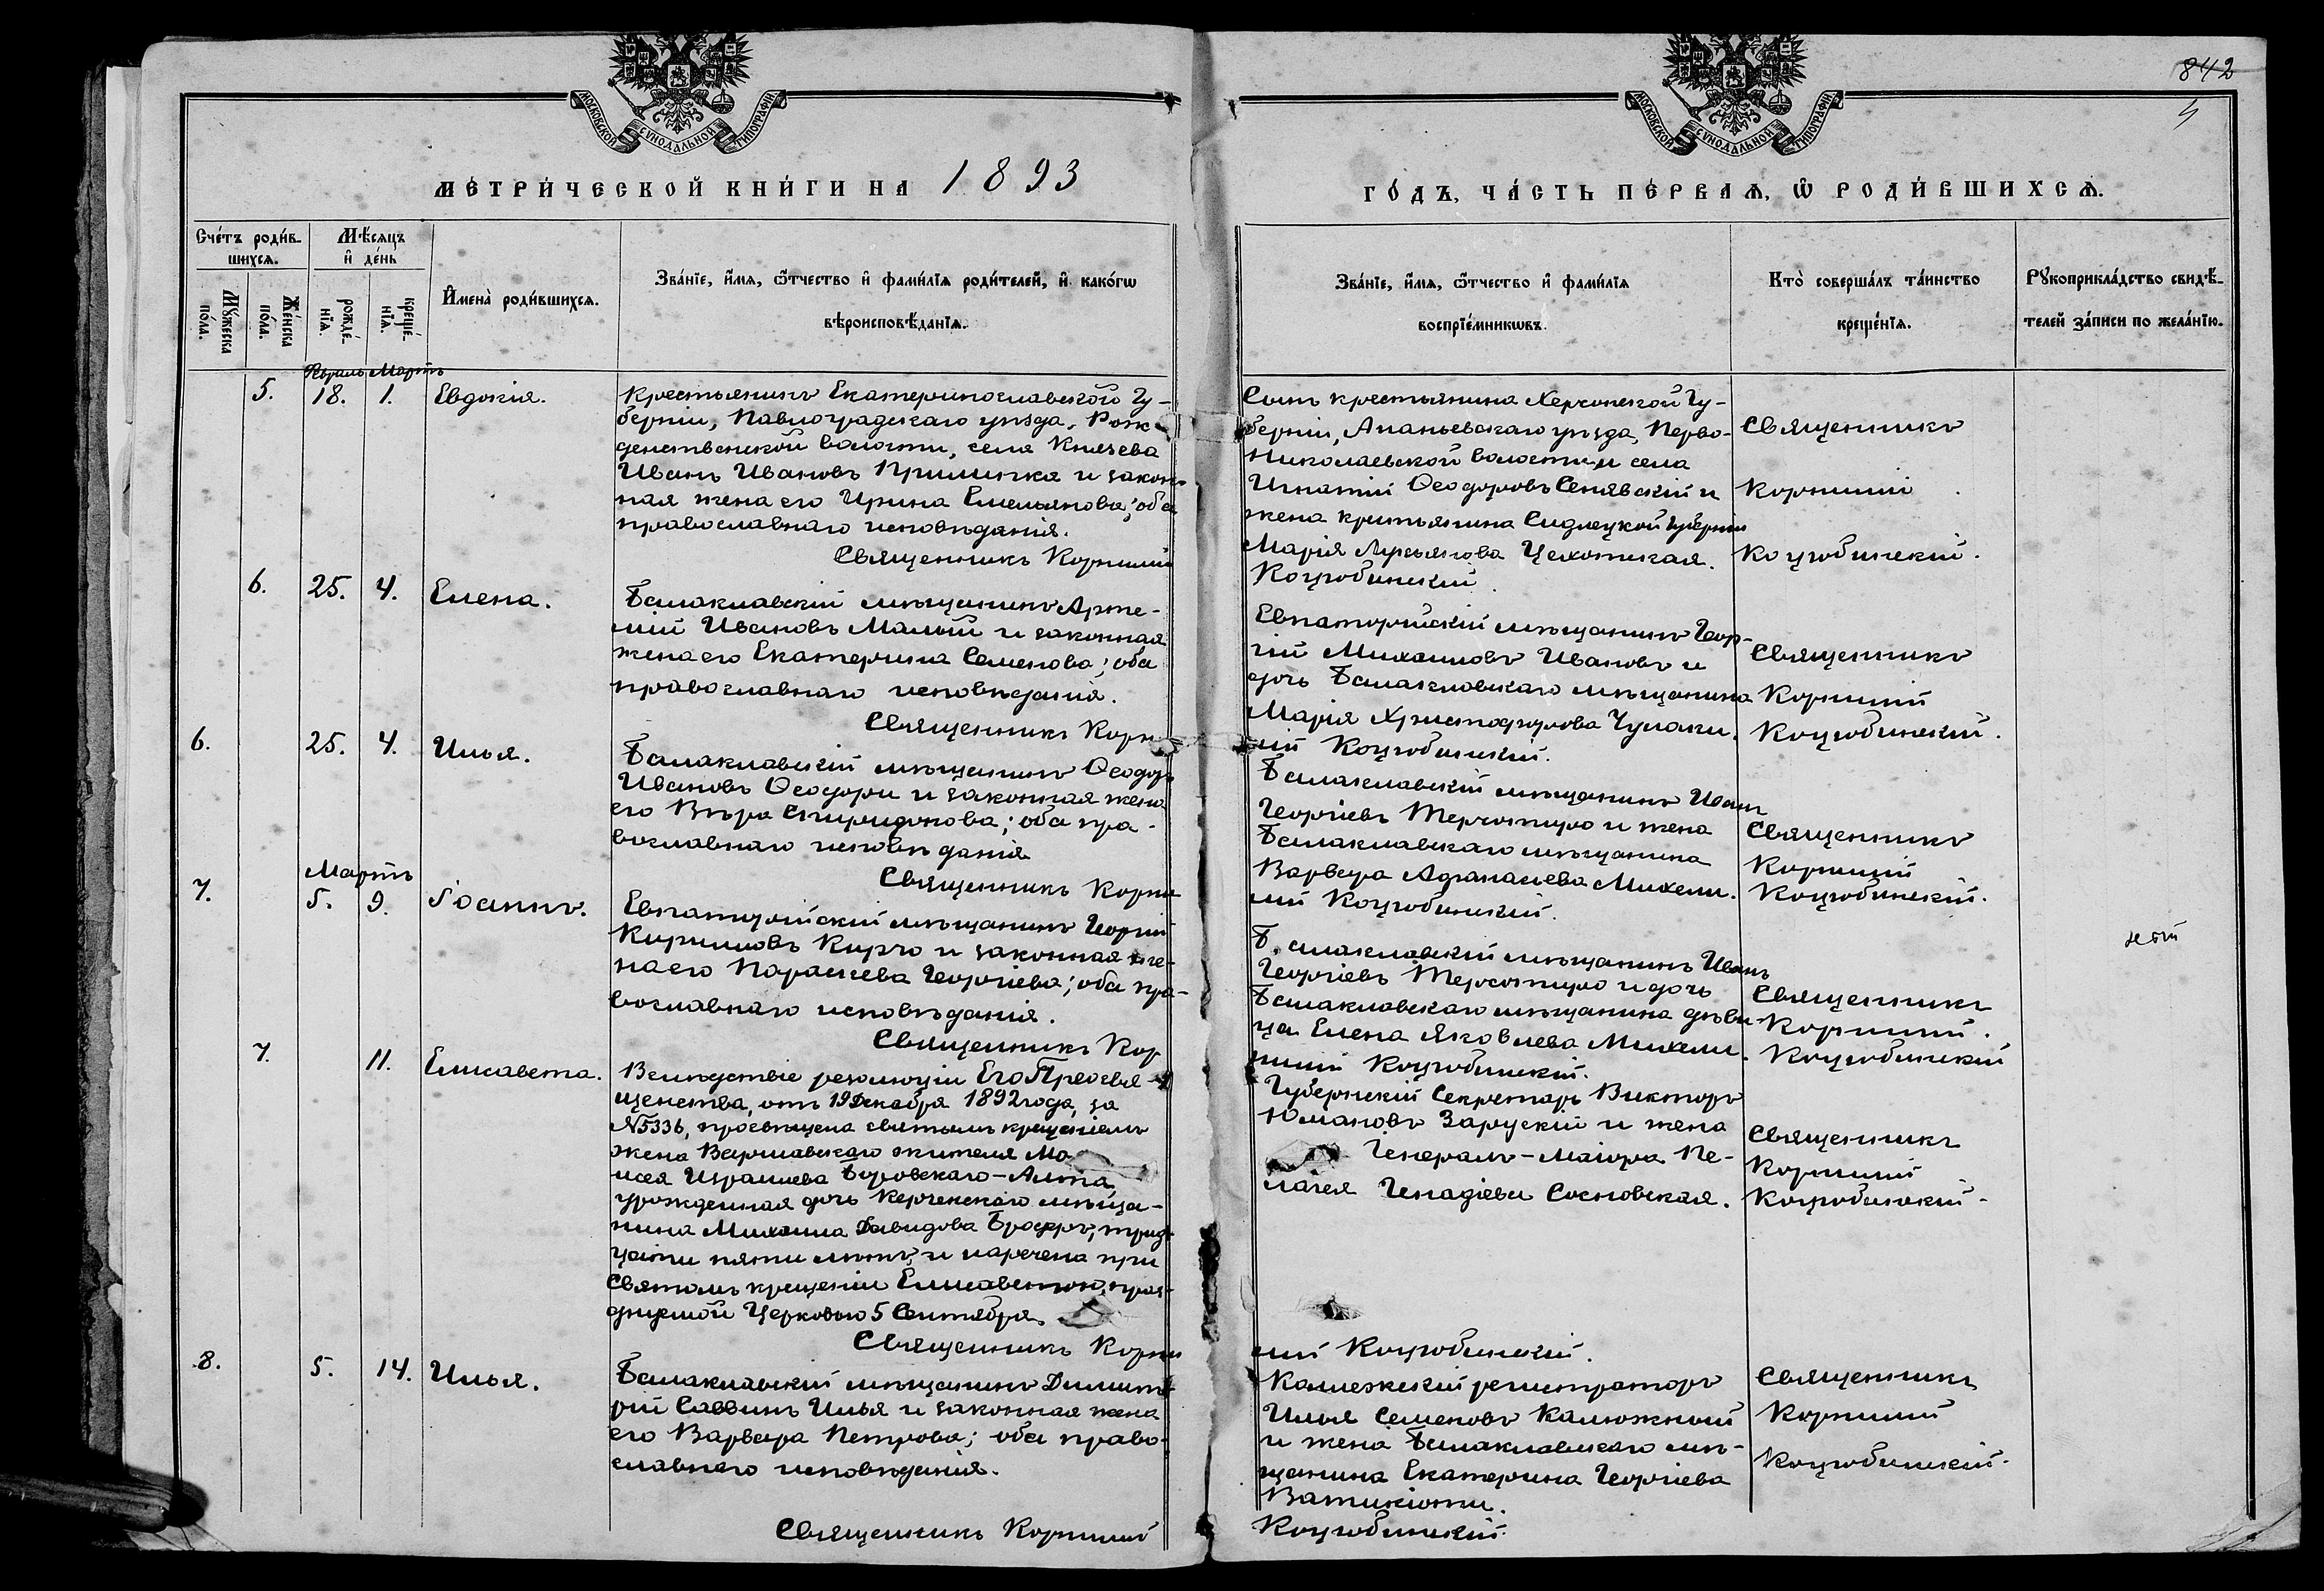 842
4
МОСКОВСКОЙ СѴНОДАЛЬНОЙ ТИПОГРАФІИ
МОСКОВСКОЙ СѴНОДАЛЬНОЙ ТИПОГРАФІИ
МЕТРИ́ЧЕСКОЙ КНИ́ГИ НА 1893
ГО́ДЪ, ЧА́СТЬ ПЕ́РВАѦ, Ѿ РОДИ́ВШИХСѦ.
Сче́тъ роди́в-
шихсѧ.
Мѣ́сѧцъ
и҆ де́нь
Мꙋ́жеска
по́ла.
Же́нска
по́ла.
рожде́-
нїѧ.
креще́-
нїѧ.
И҆мена̀ роди́вшихсѧ.
Зва́нїе, и҆́мѧ, ѻ҆́тчество и҆ фами́лїѧ роди́телей, и҆ како́гѡ
вѣроисповѣ́данїѧ.
Зва́нїе, и҆́мѧ, ѻ҆́тчество и҆ фами́лїѧ
воспрїе́мникѡвъ.
Кто̀ соверша́лъ та́инство
креще́нїѧ.
Рꙋкоприкла́дство свидѣ́-
телей за́писи по жела́нїю.
Мартъ
5. 18. 1. Евдокія.
Крестьянинъ Екатеринославской Гу-
берніи, Павлоградскаго уѣзда, Рож-
дественской волости, села Князева
Иванъ Ивановъ и закон-
ная жена его Ирина Емельянова; оба
православнаго исповѣданія.
Священникъ Корнилій
Сынъ крестьянина Херсонской Гу-
берніи, Ананьевскаго уѣзда, Перво-
Николаевской волости и села
Игнатій Ѳеодоровъ Сенявскій и
жена крестьянина Сидлецкой губерніи
Марія Лукьянова
Коцюбинскій.
Священникъ
Корнилій
Коцюбинскій.
6. 25. 4. Елена.
Балаклавскій мѣщанинъ Арте-
мій Ивановъ Малый и законная
жена его Екатерина Семенова; оба
православнаго исповѣданія.
Священникъ Корни
Евпаторійскій мѣщанинъ Геор-
гій Михаиловъ Ивановъ и
дочь Балаклавскаго мѣщанина
Марія Христофорова Чупаки.
лій Коцюбинскій.
Священникъ
Корнилій
Коцюбинскій.
6. 25. 4. Илья.
Балаклавскій мѣщанинъ Ѳеодоръ
Ивановъ Ѳеодори и законная жена
его Вѣра Спиридонова; оба пра-
вославнаго исповѣданія
Священникъ Корни
Балаклавскій мѣщанинъ Иванъ
Георгіевъ и жена
Балаклавскаго мѣщанина
Варвара Афанасіева Михели.
лій Коцюбинскій.
Священникъ
Корнилій
Коцюбинскій.
Мартъ
7. 5. 9. Іоаннъ.
Евпаторійскій мѣщанинъ Георгій
Кирилловъ Кирго и законная же-
на его Параскева Георгіева; оба пра-
вославнаго исповѣданія.
Священникъ Кор
Балаклавскій мѣщанинъ Иванъ
Георгіевъ и дочь
Балаклавскаго мѣщанина дѣви-
ца Елена Яковлева Михели.
нилій Коцюбинскій.
Священникъ
Корнилій.
Коцюбинскій
7. 11. Елисавета.
Вслѣдствіе резолюціи Его Преосвя-
щенства, отъ 19 Декабря 1892 года, за
№5336, просвѣщена святымъ крещеніемъ
жена Варшавскаго жителя Мо
исея Израилева Боровскаго-Алта,
урожденная дочь Керченскаго мѣща-
нина Михаила Давидова Бродскаго, трид-
цати пяти лѣтъ, и наречена при
Святомъ крещеніи Елисаветою, праз-
днуемой Церковью 5 Сентября.
Священникъ Корни
Губернскій Секретарь Викторъ
Юліановъ Зарускій и жена
Генералъ-Маіора Пе-
лагея Генадіева Сосновская.
лій Коцюбинскій.
Священникъ
Корнилій
Коцюбинскій.
8. 5. 14. Илья.
Балаклавскій мѣщанинъ Димит-
рій Саввинъ Илья и законная жена
его Варвара Петрова; оба право-
славнаго исповѣданія.
Священникъ Корнилій
Коллежскій регистраторъ
Илья Семеновъ Калюжный
и жена Балаклавскаго мѣ-
щанина Екатерина Георгіева
Ватикіоти.
Коцюбинскій.
Священникъ
Корнилій
Коцюбинскій.